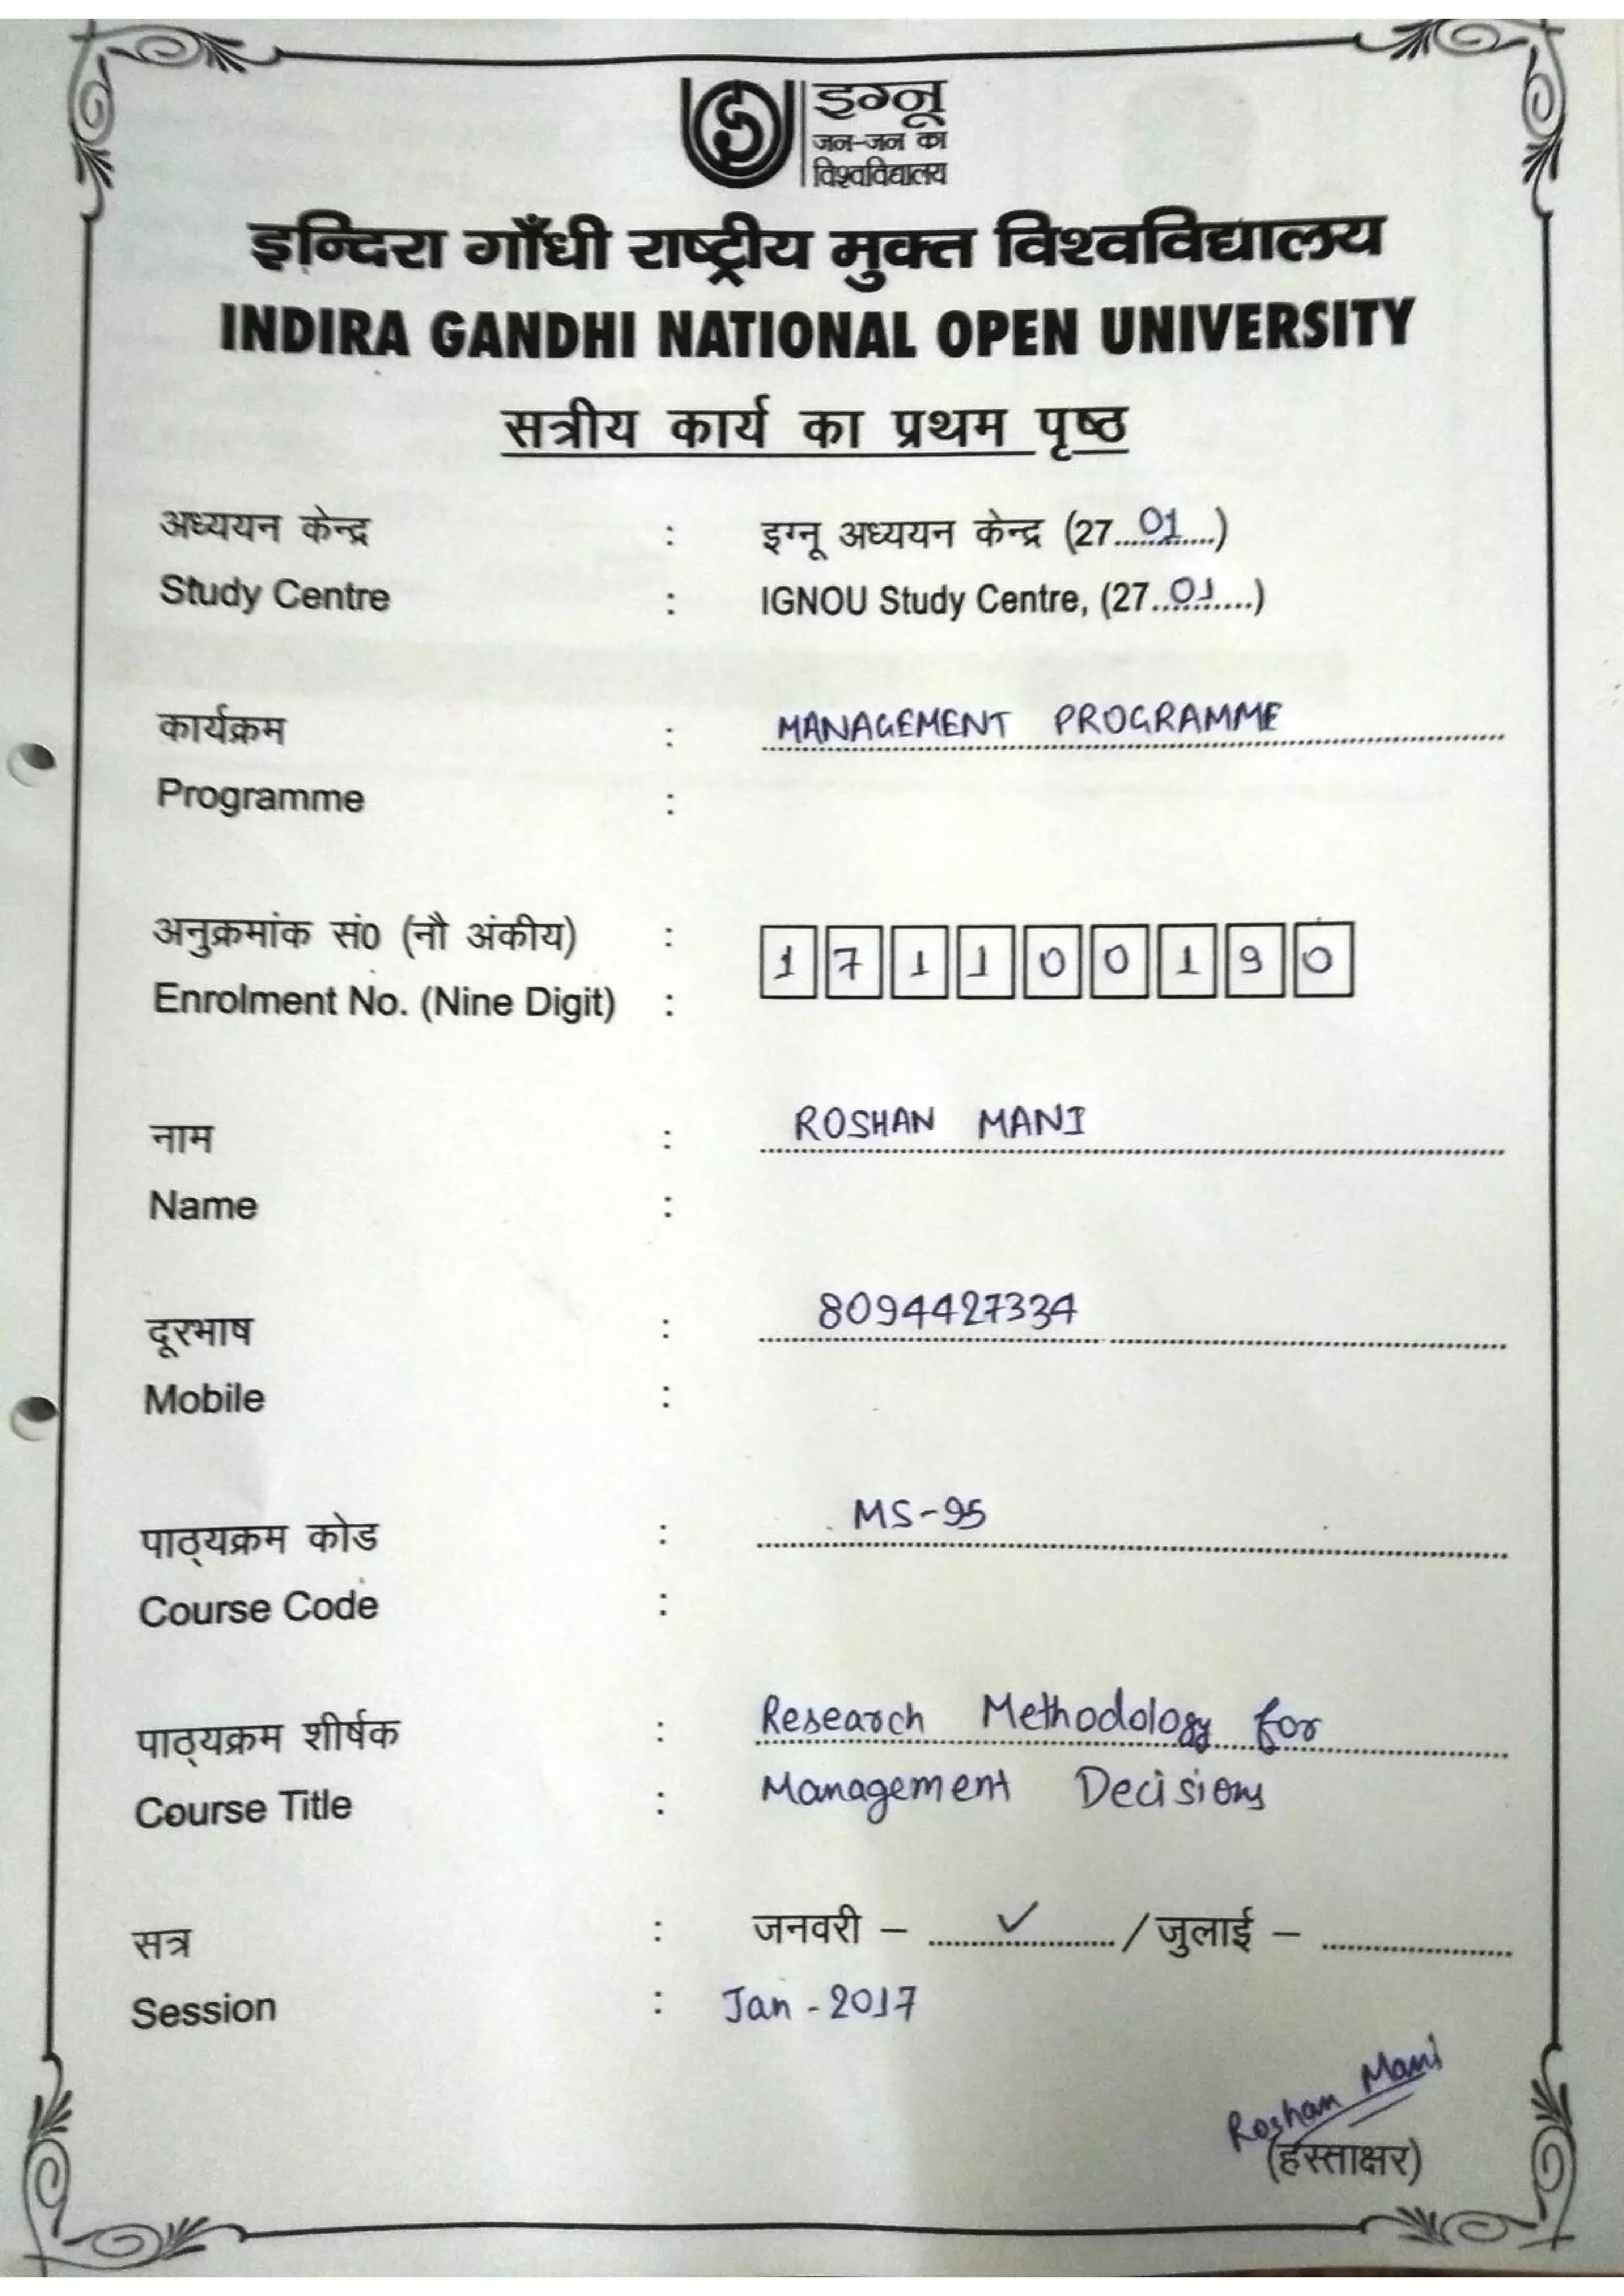 इग्नू
जन-जन का
विश्वविद्यालय
इन्दिरा गाँधी राष्ट्रीय मुक्त विश्वविद्यालय
INDIRA GANDHI NATIONAL OPEN UNIVERSITY
सत्रीय कार्य का प्रथम पृष्ठ
अध्ययन केन्द्र : इग्नू अध्ययन केन्द्र (27...01...)
Study Centre : IGNOU Study Centre, (27...01...)
कार्यक्रम : MANAGEMENT PROGRAMME
Programme :
अनुक्रमांक सं0 (नौ अंकीय) : 1 7 1 1 0 0 1 9 0
Enrolment No. (Nine Digit) :
नाम : ROSHAN MANI
Name :
दूरभाष : 8094427334
Mobile :
पाठ्यक्रम कोड : MS-95
Course Code :
पाठ्यक्रम शीर्षक : Research Methodology for
Course Title : Management Decisions
सत्र : जनवरी – ...✓... / जुलाई – ......
Session : Jan - 2017
Roshan Mani
(हस्ताक्षर)